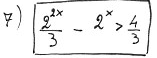 7) 2^{2x}/3 - 2^x > 4/3